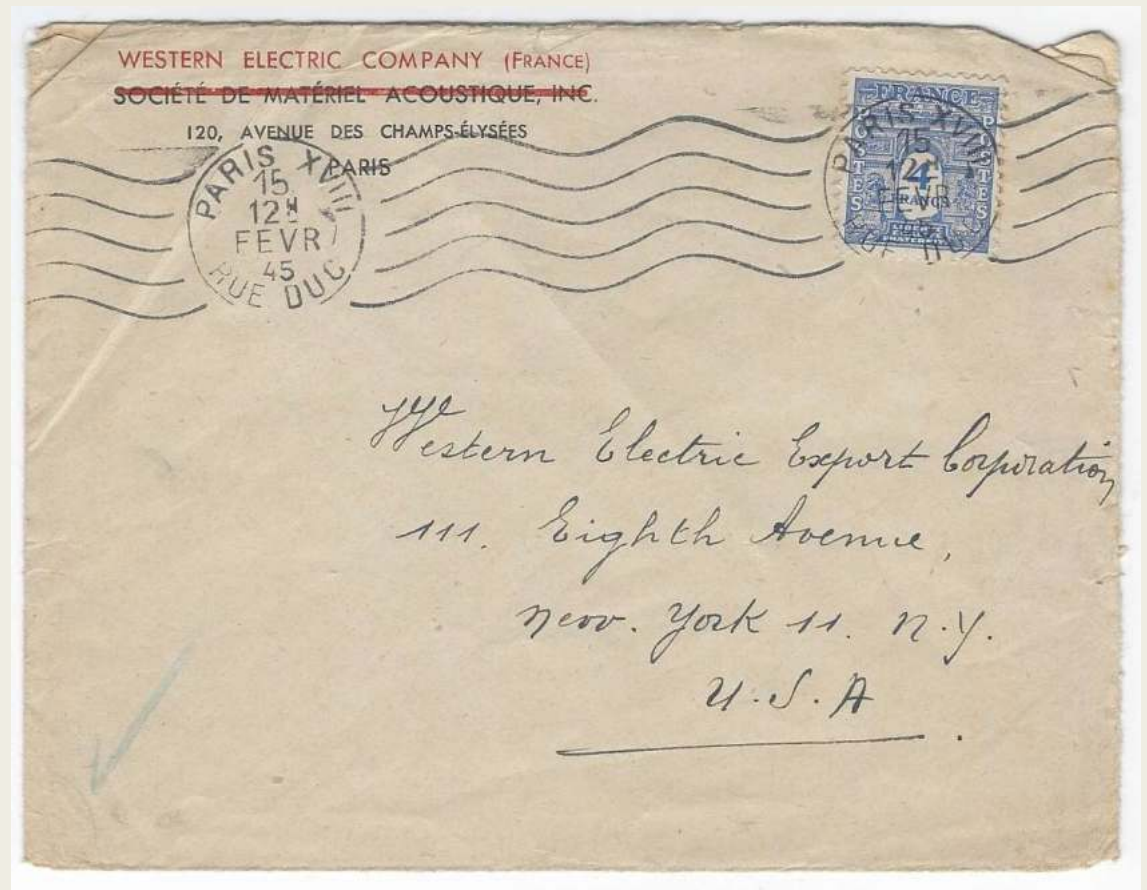 WESTERN ELECTRIC COMPANY (FRANCE)
SOCIÉTÉ DE MATÉRIEL ACOUSTIQUE, INC.
120, AVENUE DES CHAMPS-ÉLYSÉES
PARIS
PARIS XVIII
15
12H
FEVR
45
RUE DUC
FRANCE
POSTES
POSTES
4
FRANCS
PARIS XVIII
15
12
FEVR
45
Western Electric Export Corporation
111. Eighth Avenue,
New. York 11. N.Y.
U.S.A.